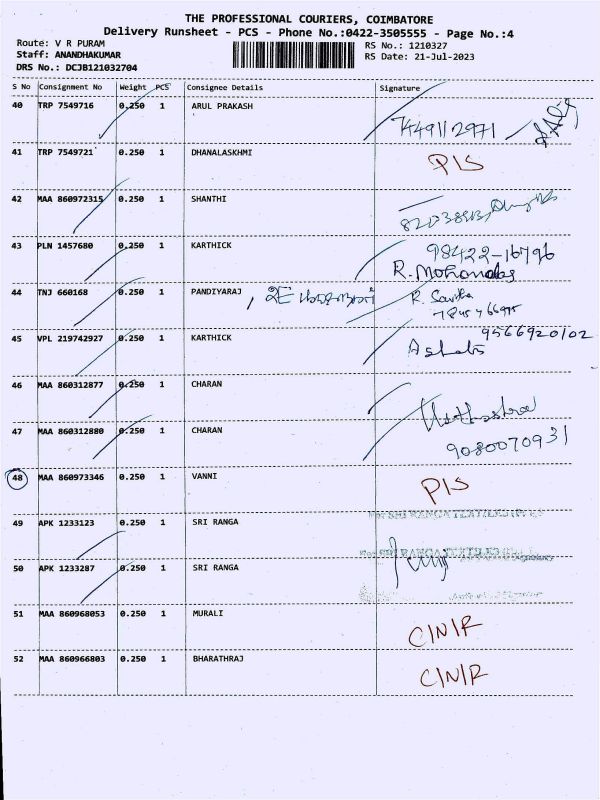 THE PROFESSIONAL COURIERS, COIMBATORE
Delivery Runsheet - PCS - Phone No.:0422-3505555 - Page No.:4
Route: V R PURAM
RS No.: 1210327
Staff: ANANDHAKUMAR
RS Date: 21-Jul-2023
DRS No.: DCJB121032704
S No Consignment No Weight PCS Consignee Details Signature
40 TRP 7549716 0.250 1 ARUL PRAKASH
41 TRP 7549721 0.250 1 DHANALASKHMI PIS
42 MAA 860972315 0.250 1 SHANTHI
43 PLN 1457680 0.250 1 KARTHICK 98422-16796
44 TNJ 660168 0.250 1 PANDIYARAJ
45 VPL 219742927 0.250 1 KARTHICK 9566920102
46 MAA 860312877 0.250 1 CHARAN
47 MAA 860312880 0.250 1 CHARAN 9080070931
48 MAA 860973346 0.250 1 VANNI PIS
49 APK 1233123 0.250 1 SRI RANGA
50 APK 1233287 0.250 1 SRI RANGA
51 MAA 860968053 0.250 1 MURALI C/N/R
52 MAA 860966803 0.250 1 BHARATHRAJ C/N/R